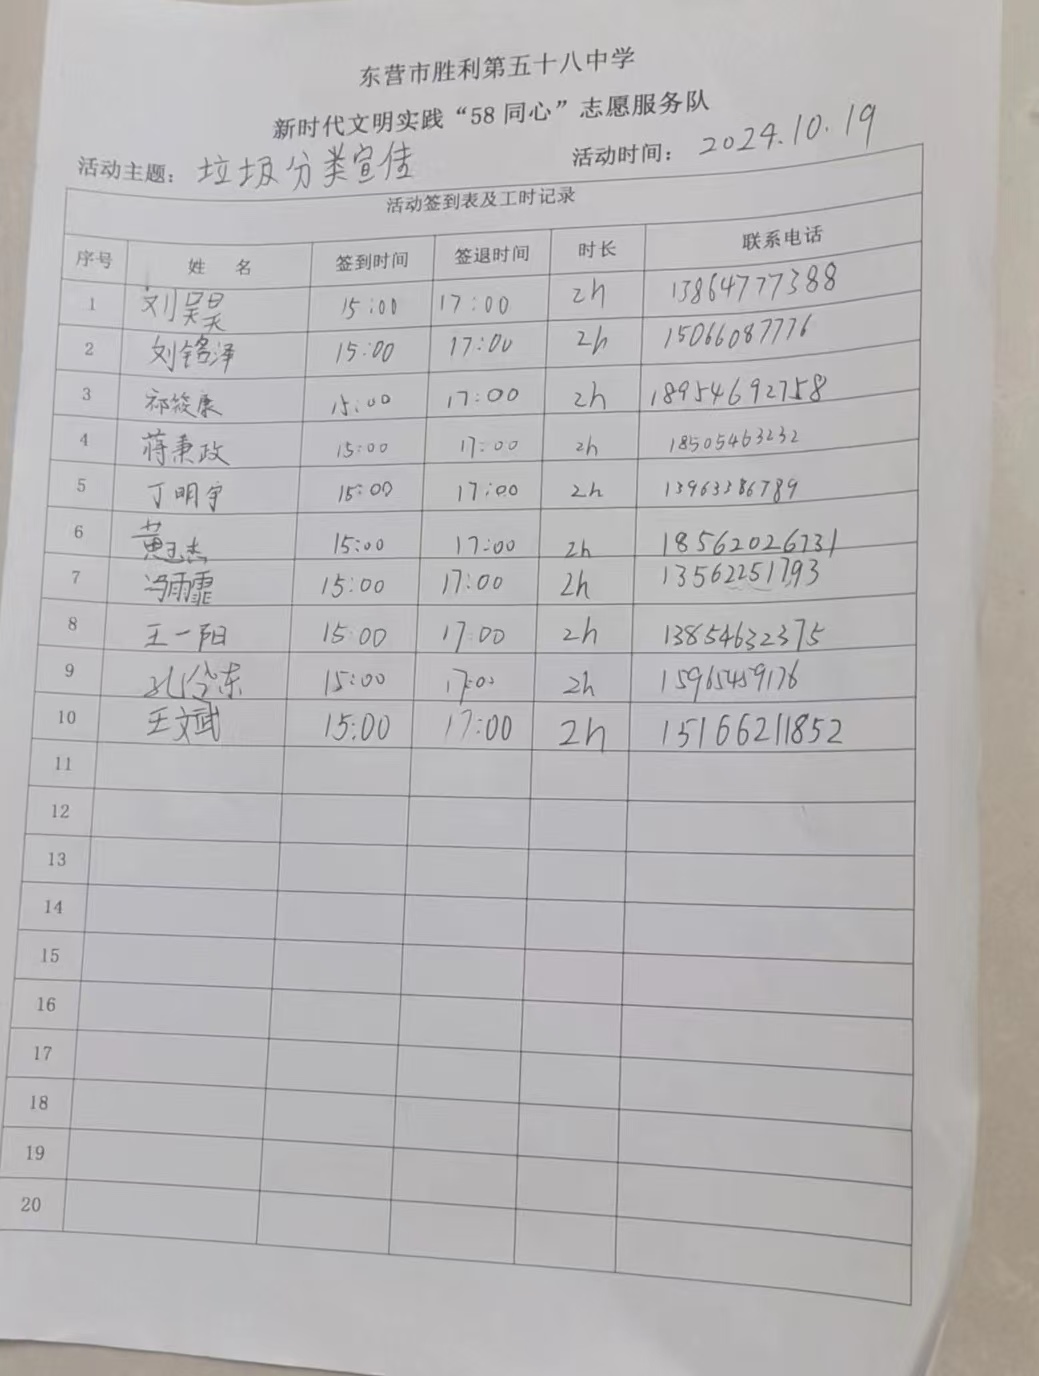 东营市胜利第五十八中学
新时代文明实践“58同心”志愿服务队
活动主题：垃圾分类宣传 活动时间：2024.10.19
活动签到表及工时记录
序号 姓 名 签到时间 签退时间 时长 联系电话
1 刘昊昊 15:00 17:00 2h 13864777388
2 刘铭泽 15:00 17:00 2h 15066087776
3 祁筱康 15:00 17:00 2h 18954692758
4 蒋秉政 15:00 17:00 2h 18505463232
5 丁明宇 15:00 17:00 2h 13963386789
6 黄玉杰 15:00 17:00 2h 18562026731
7 冯雨霏 15:00 17:00 2h 13562251793
8 王一阳 15:00 17:00 2h 13854632375
9 孔令东 15:00 17:00 2h 15965459176
10 王文斌 15:00 17:00 2h 15166211852
11
12
13
14
15
16
17
18
19
20